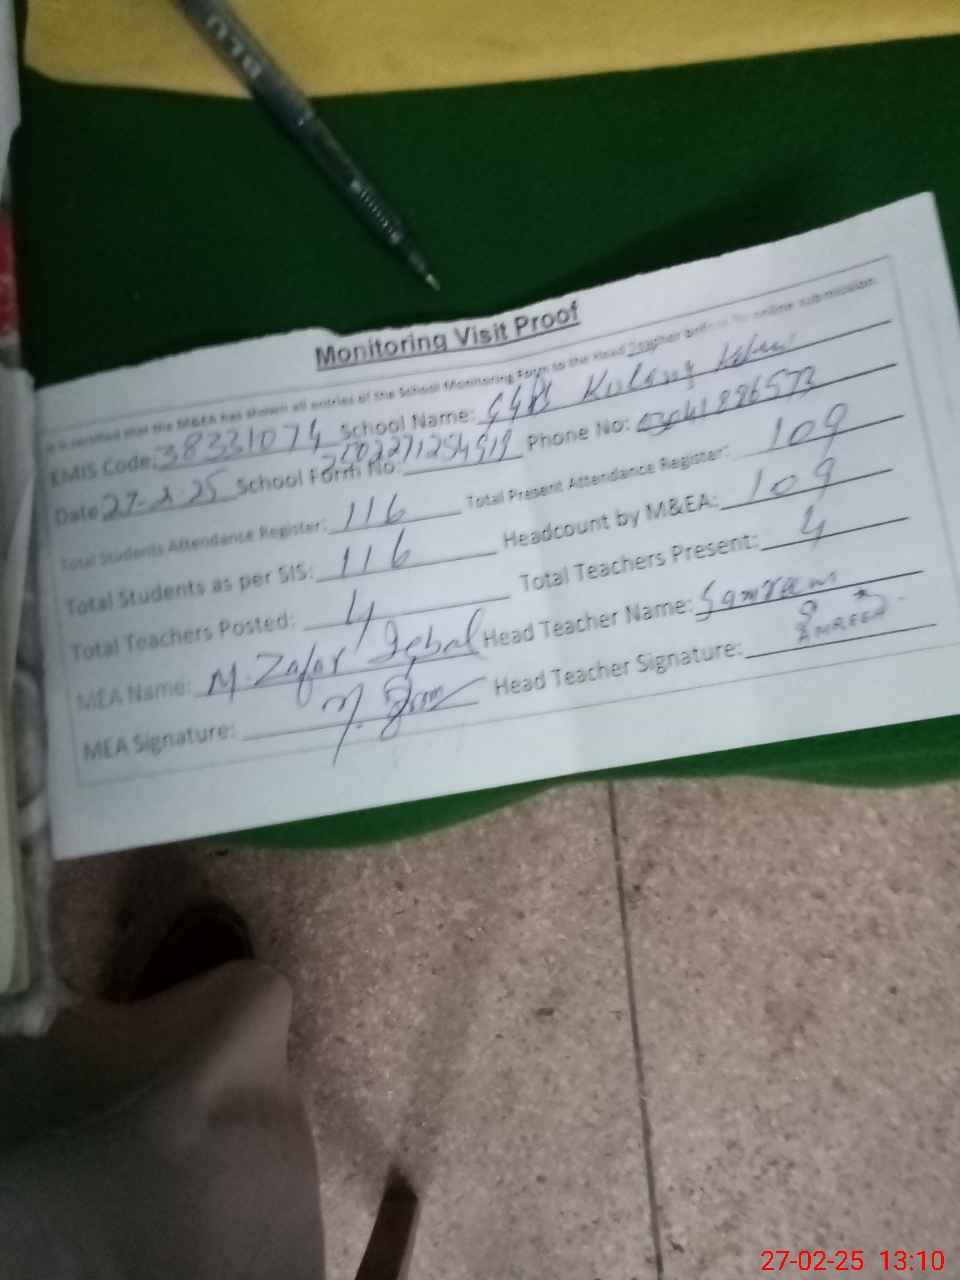 Monitoring Visit Proof
It is certified that the M&EA has shown all entries of the School Monitoring Form to the Head Teacher before online submission.
EMIS Code: 38331074 School Name:
Date 27-2-25 School Form No: Phone No:
Total Students Attendance Register: 116 Total Present Attendance Register: 109
Total Students as per SIS: 116 Headcount by M&EA: 109
Total Teachers Posted: 4 Total Teachers Present: 4
MEA Name: M. Zafar Iqbal Head Teacher Name:
MEA Signature: Head Teacher Signature:
27-02-25 13:10